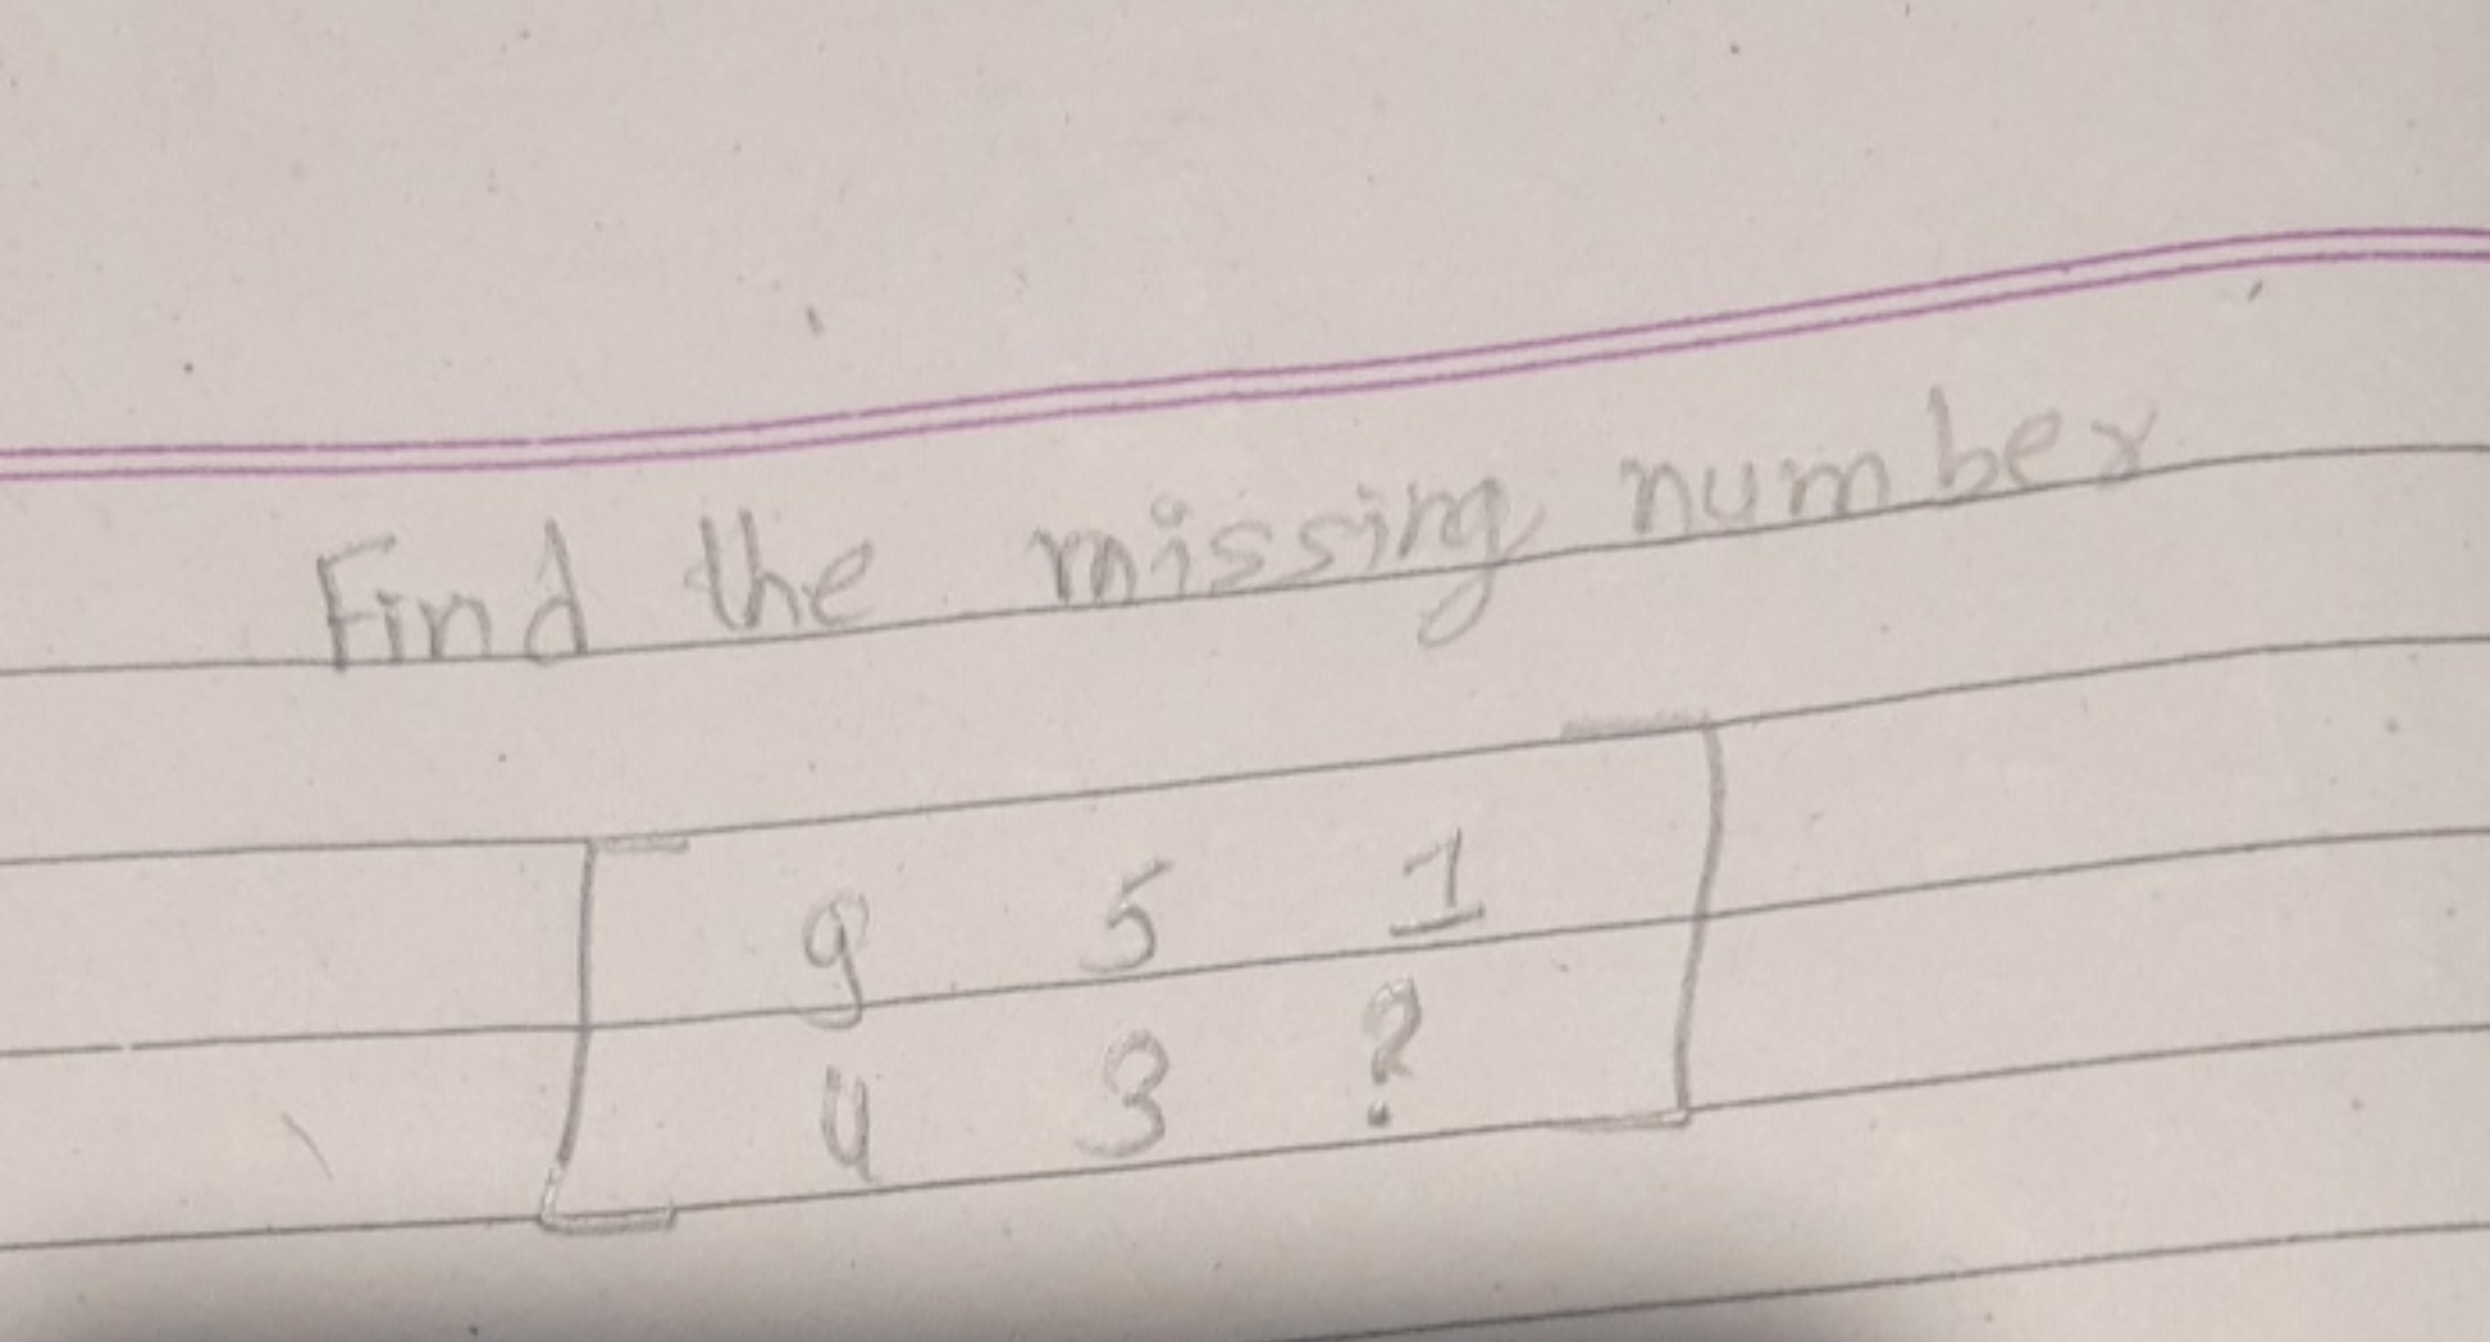 Find the missing number
9 5 1
4 3 ?